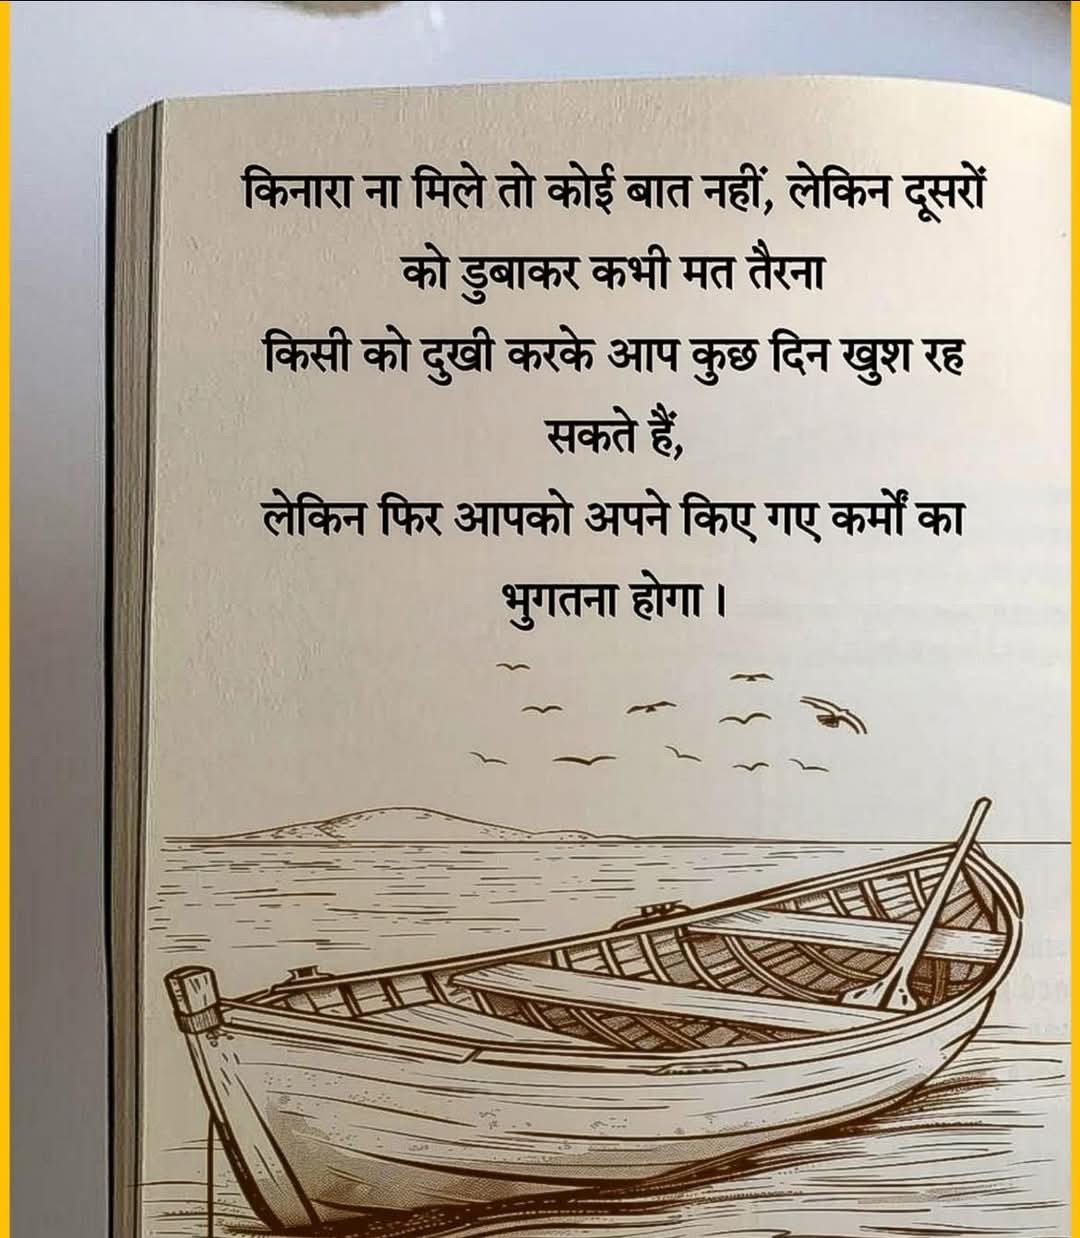 किनारा ना मिले तो कोई बात नहीं, लेकिन दूसरों
को डुबाकर कभी मत तैरना
किसी को दुखी करके आप कुछ दिन खुश रह
सकते हैं,
लेकिन फिर आपको अपने किए गए कर्मों का
भुगतना होगा।